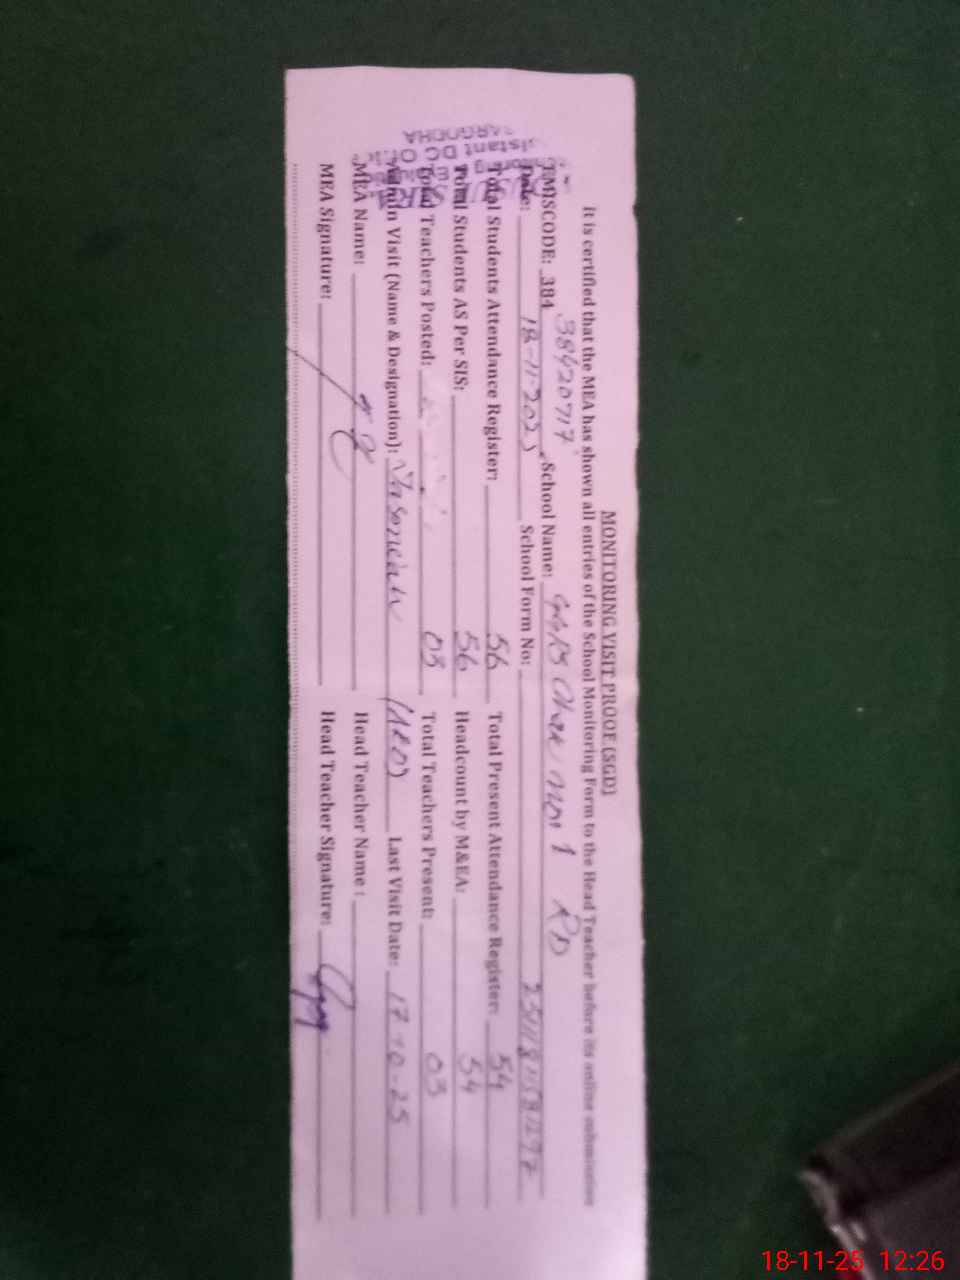 MONITORING VISIT PROOF (SGD)
It is certified that the MEA has shown all entries of the School Monitoring Form to the Head Teacher before its online submission
38420717
EMISCODE: 384 School Name: Chak No. 1 RD
Date: 18-11-2025 School Form No:
Total Students Attendance Register: 56 Total Present Attendance Register: 54
Total Students AS Per SIS: 56 Headcount by M&EA: 54
Total Teachers Posted: 03 Total Teachers Present: 03
Admin Visit (Name & Designation): Last Visit Date: 17-10-25
MEA Name: Head Teacher Name :
MEA Signature: Head Teacher Signature:
SARGODHA
18-11-25 12:26